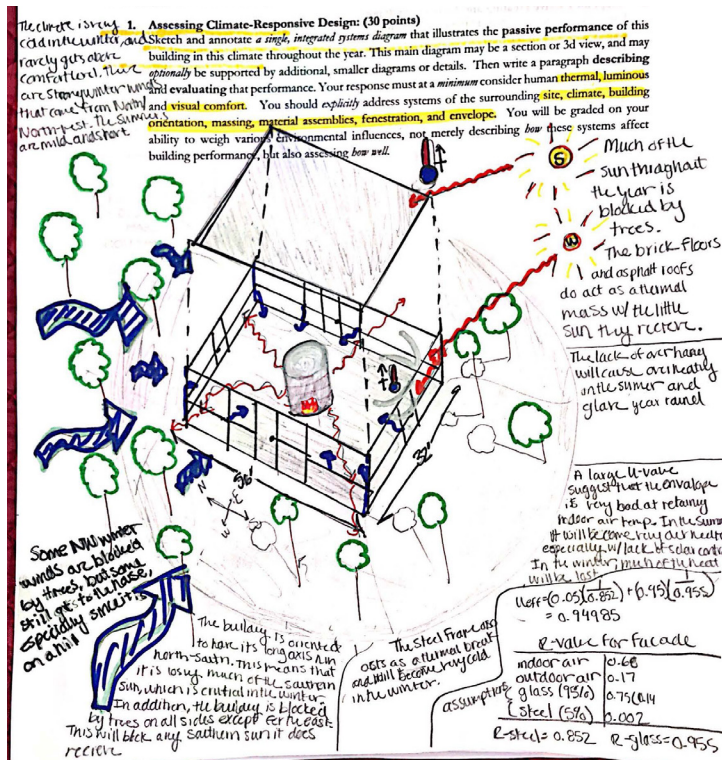 1. Assessing Climate-Responsive Design: (30 points)
sketch and annotate a single, integrated systems diagram that illustrates the passive performance of this
building in this climate throughout the year. This main diagram may be a section or 3d view, and may
optionally be supported by additional, smaller diagrams or details. Then write a paragraph describing
and evaluating that performance. Your response must at a minimum consider human thermal, luminous
and visual comfort. You should explicitly address systems of the surrounding site, climate, building
orientation, massing, material assemblies, fenestration, and envelope. You will be graded on your
ability to weigh various environmental influences, not merely describing how these systems affect
building performance, but also assessing how well.
The climate is very
cold in the winter, and
rarely gets above
comfort level. There
are strong winter winds
that come from North/
North-West. The summers
are mild and short.
S
W
Much of the
sun throughout
the year is
blocked by
trees.
The brick floors
and asphalt roofs
do act as a thermal
mass w/ the little
sun they recieve.
The lack of overhang
will cause overheating
in the summer and
glare year round
A large U-value
suggest that the envelope
is very bad at retaining
indoor air temp. In the summer
it will become very over heated
especially w/ lack of solar control
In the winter, much of the heat
will be lost
Ueff=(0.05)(1/0.852)+(0.95)(1/0.955)
=0.94985
R-value for facade
assumptions
indoor air 0.68
outdoor air 0.17
glass (95%)
steel (5%) 0.002
R-steel=0.852 R-glass=0.955
56'
32'
N
E
S
W
Some NW winter
winds are blocked
by trees, but some
still gets to the house,
especially since it is
on a hill
The building is oriented
to have its long axis run
north-south. This means that
it is losing much of the southern
sun, which is critical in the winter
In addition, the building is blocked
by trees on all sides except for the east.
This will block any southern sun it does
recieve
The steel frame also
acts as a thermal break
and will become very cold
in the winter.